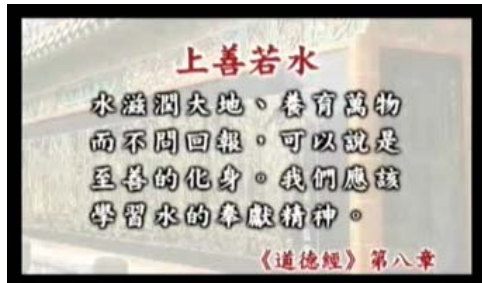 上善若水
水滋潤大地、養育萬物
而不問回報，可以說是
至善的化身。我們應該
學習水的奉獻精神。
《道德經》第八章